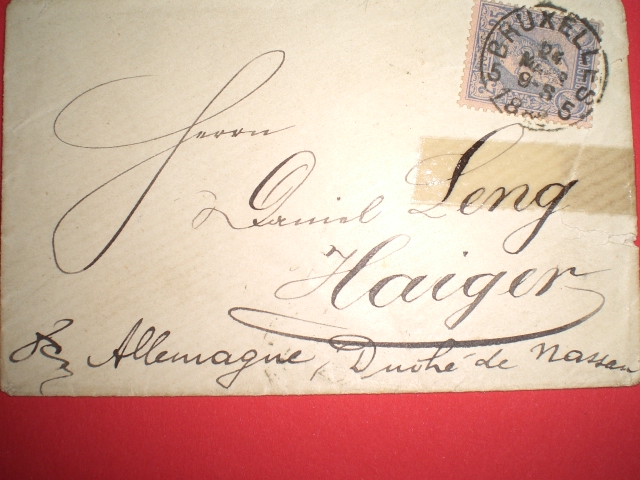 BRUXELLES
5
9-S
Herrn
Daniel Leng
Haiger
Allemagne, Duché de Nassau